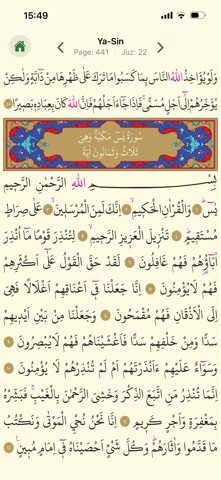 15:49
Ya-Sin
Page: 441 Juz: 22
وَلَوْ يُؤَاخِذُ اللّٰهُ النَّاسَ بِمَا كَسَبُوا مَا تَرَكَ عَلٰى ظَهْرِهَا مِنْ دَٓابَّةٍ وَلٰكِنْ
يُؤَخِّرُهُمْ اِلٰٓى اَجَلٍ مُسَمًّىۚ فَاِذَا جَٓاءَ اَجَلُهُمْ فَاِنَّ اللّٰهَ كَانَ بِعِبَادِه۪ بَص۪يرًا
سُورَةُ يٰسٓ مَكِّيَّةٌ وَهِيَ
ثَلَاثٌ وَثَمَانُونَ اٰيَةً
بِسْمِ اللّٰهِ الرَّحْمٰنِ الرَّح۪يمِ
يٰسٓۜ ﴿١﴾ وَالْقُرْاٰنِ الْحَك۪يمِۙ ﴿٢﴾ اِنَّكَ لَمِنَ الْمُرْسَل۪ينَۙ ﴿٣﴾ عَلٰى صِرَاطٍ
مُسْتَق۪يمٍۜ ﴿٤﴾ تَنْز۪يلَ الْعَز۪يزِ الرَّح۪يمِۙ ﴿٥﴾ لِتُنْذِرَ قَوْمًا مَٓا اُنْذِرَ
اٰبَٓاؤُ۬هُمْ فَهُمْ غَافِلُونَ ﴿٦﴾ لَقَدْ حَقَّ الْقَوْلُ عَلٰٓى اَكْثَرِهِمْ
فَهُمْ لَا يُؤْمِنُونَ ﴿٧﴾ اِنَّا جَعَلْنَا ف۪ٓي اَعْنَاقِهِمْ اَغْلَالًا فَهِيَ
اِلَى الْاَذْقَانِ فَهُمْ مُقْمَحُونَ ﴿٨﴾ وَجَعَلْنَا مِنْ بَيْنِ اَيْد۪يهِمْ
سَدًّا وَمِنْ خَلْفِهِمْ سَدًّا فَاَغْشَيْنَاهُمْ فَهُمْ لَا يُبْصِرُونَ ﴿٩﴾
وَسَوَٓاءٌ عَلَيْهِمْ ءَاَنْذَرْتَهُمْ اَمْ لَمْ تُنْذِرْهُمْ لَا يُؤْمِنُونَ ﴿١٠﴾
اِنَّمَا تُنْذِرُ مَنِ اتَّبَعَ الذِّكْرَ وَخَشِيَ الرَّحْمٰنَ بِالْغَيْبِۚ فَبَشِّرْهُ
بِمَغْفِرَةٍ وَاَجْرٍ كَر۪يمٍ ﴿١١﴾ اِنَّا نَحْنُ نُحْيِ الْمَوْتٰى وَنَكْتُبُ
مَا قَدَّمُوا وَاٰثَارَهُمْۜ وَكُلَّ شَيْءٍ اَحْصَيْنَاهُ ف۪ٓي اِمَامٍ مُب۪ينٍ۟ ﴿١٢﴾